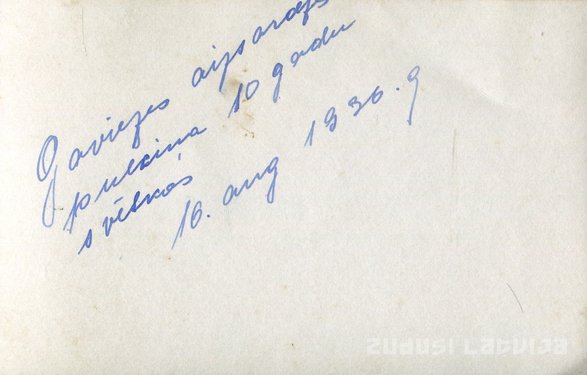 Gaviezes aizsargs
pulciņa 10 gadu
svētkos
16. aug 1936. g
Zudusī Latvija